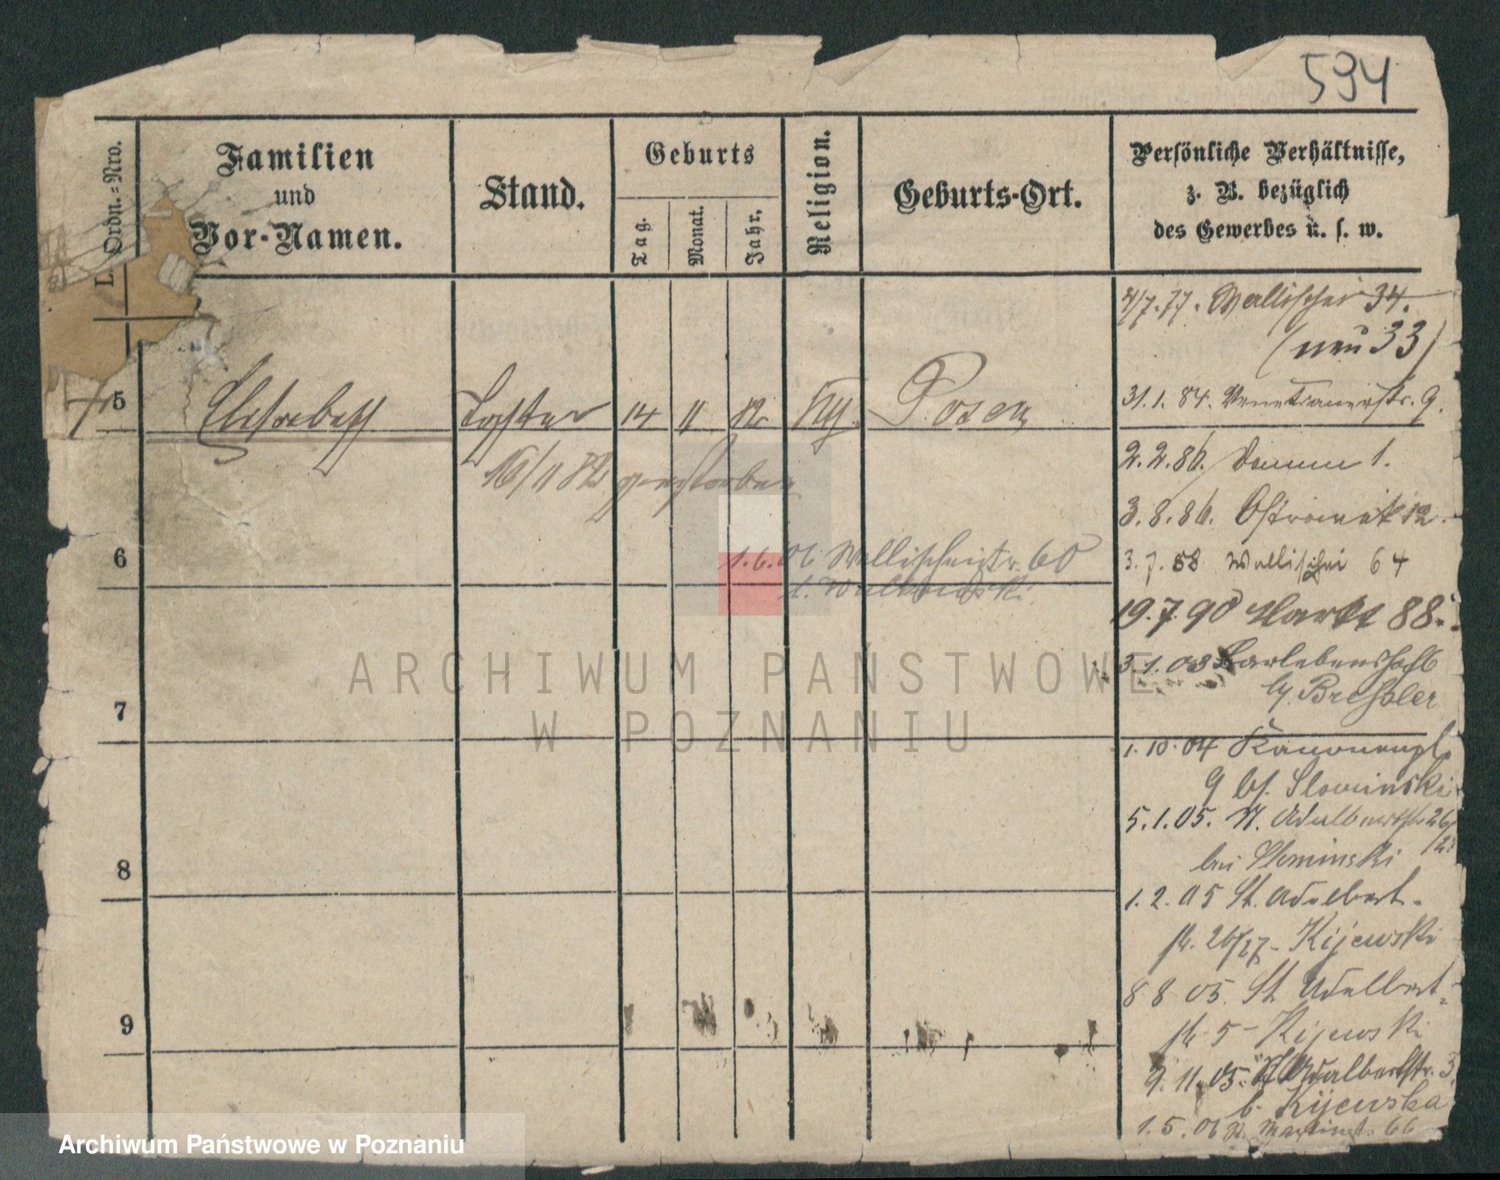 594
L. Ordn.=Nro.
Familien
und
Vor-Namen.
Stand.
Geburts
Tag.
Monat.
Jahr.
Religion.
Geburts-Ort.
Persönliche Verhältnisse,
z. B. bezüglich
des Gewerbes u. s. w.
4/7.77. Wallischei 34.
(neu 33)
5 Elisabeth Tochter 14 11 82 Posen
31.1.84. Venetianerstr. 9.
16/11 82 gestorben
2.2.86. Damm 1.
3.8.86. Ostrowek 12.
6
1.6.06 Wallischeistr. 60
3.7.88 Wallischei 64
19.7.90 Markt 88.
3.1.03
7
1.10.04 Kanonenpl.
9 bf. Slominski
5.1.05. St. Adalbertstr 26/
bei Slominski
8
1.2.05 St. Adalbert-
str. 26/27 - Kijewski
8 8 05. St Adalbert-
str 5 - Kijewski
9
9.11.05. St Adalbertstr. 3
b. Kijewska
1.5.06 St. Martinstr. 66
ARCHIWUM PAŃSTWOWE
W POZNANIU
Archiwum Państwowe w Poznaniu